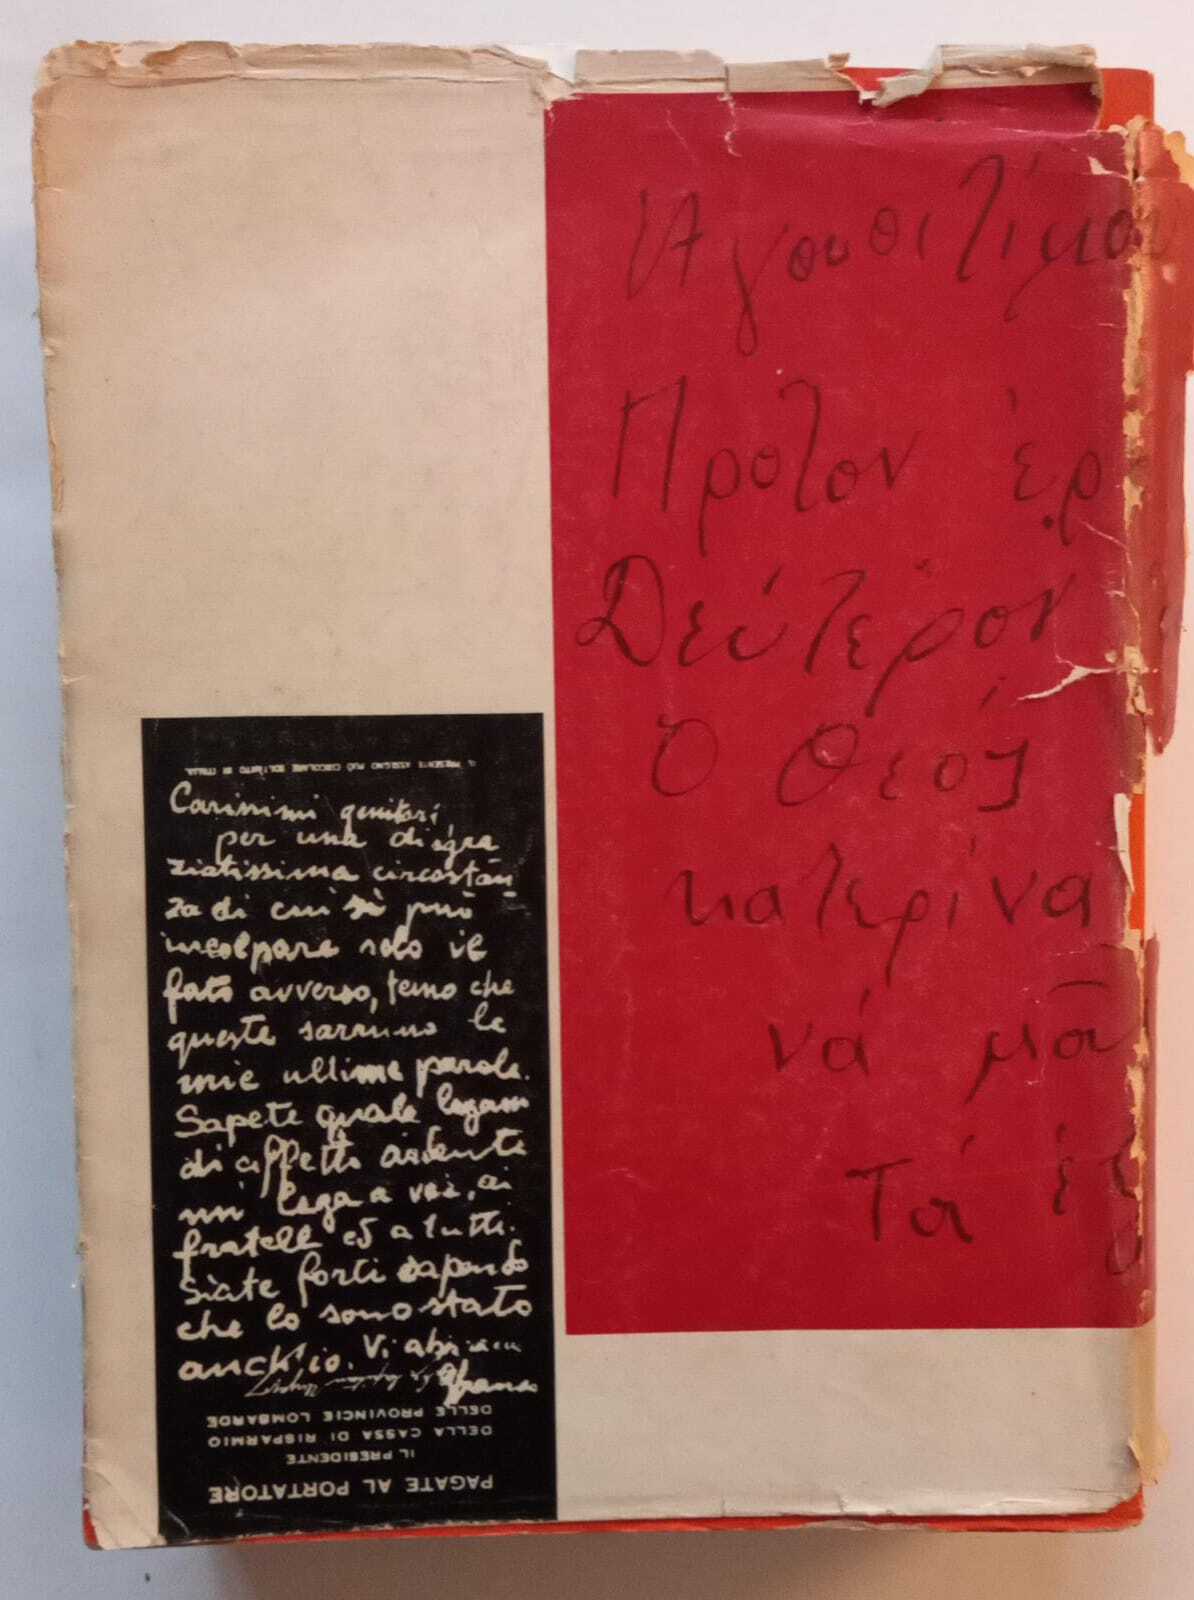 IL PRESENTE ASSEGNO PUÒ CIRCOLARE SOLTANTO IN ITALIA
Carissimi genitori,
per una disgra
ziatissima circostan
za di cui si può
incolpare solo il
fato avverso, temo che
queste saranno le
mie ultime parole.
Sapete quale legame
di affetto ardente
mi lega a voi, ai
fratelli ed a tutti.
Siate forti sapendo
che lo sono stato
anch'io. Vi abbraccio
Franco
DELLE PROVINCIE LOMBARDE
DELLA CASSA DI RISPARMIO
IL PRESIDENTE
PAGATE AL PORTATORE
Πρότον
Δεύτερον
Ο Θεός
κατερίνα
νά μᾶ
Τά